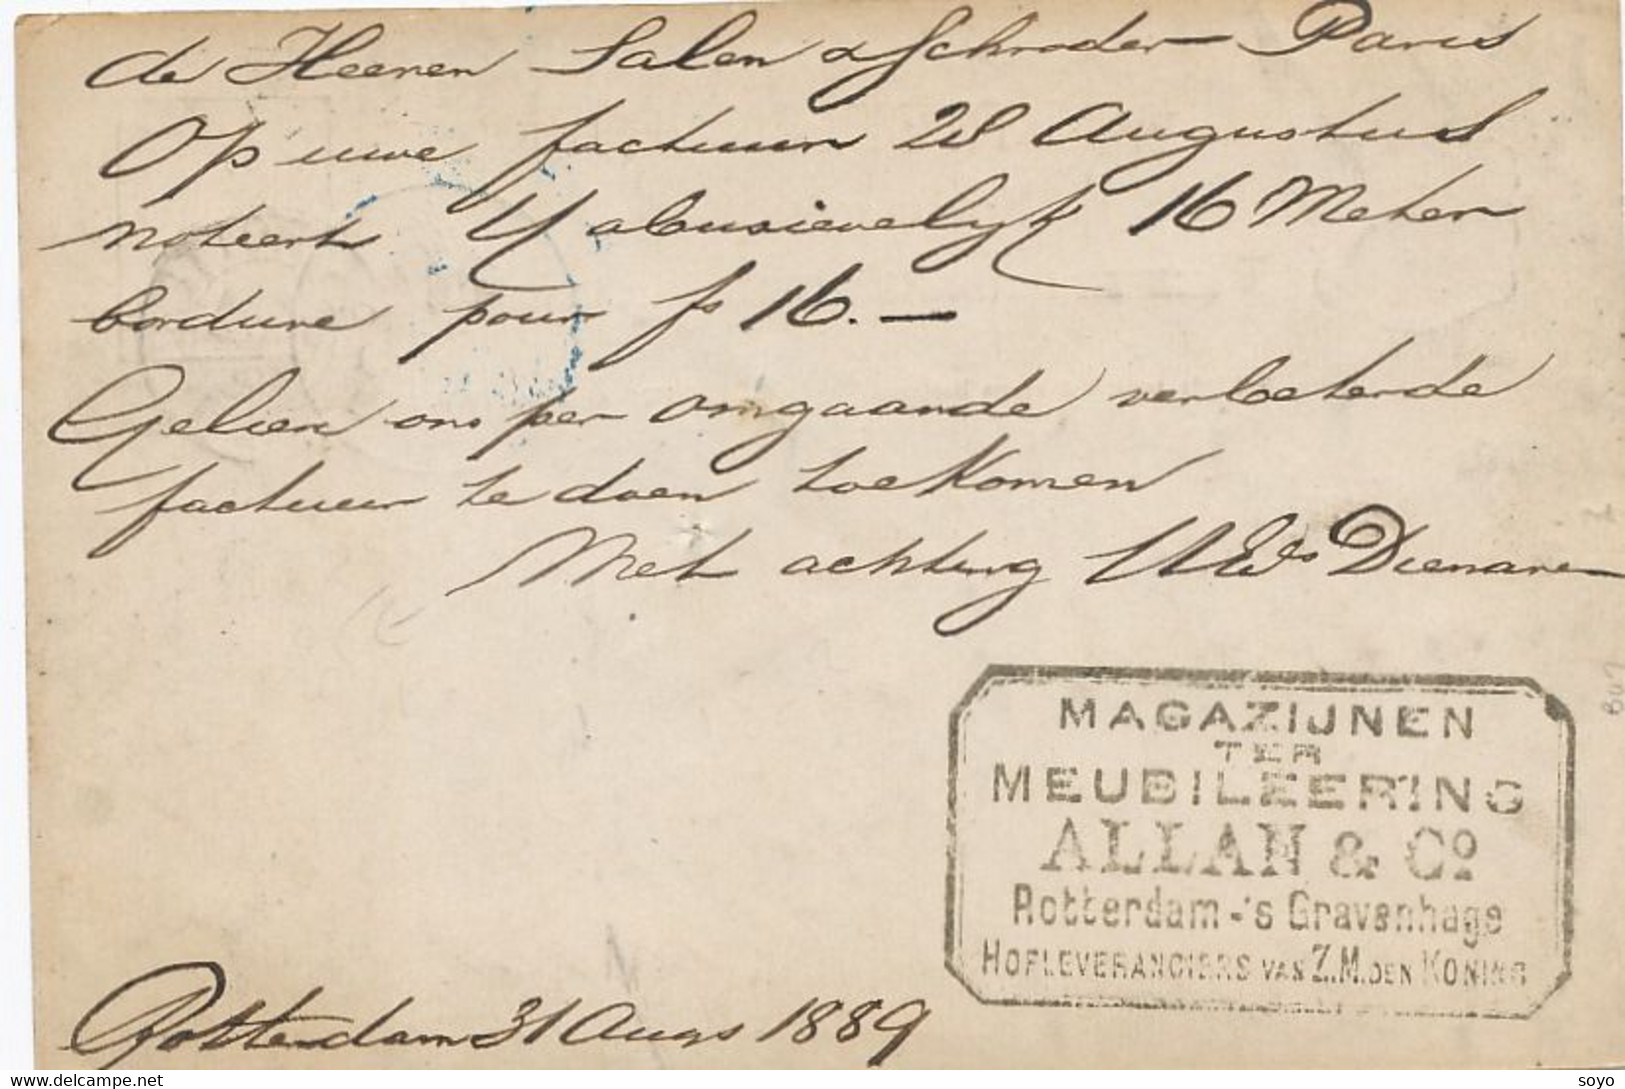 de Heeren Salen & Schroder Paris
Op uwe factuur 28 Augustus
noteert Y abusievelijk 16 Meter
bordure pour fs 16.—
Gelieve ons per omgaande verbeterde
factuur te doen toekomen
Met achting UEds Dienaren
MAGAZIJNEN
TER
MEUBILEERING
ALLAN & Co
Rotterdam-'s Gravenhage
HOFLEVERANCIERS VAN Z.M. DEN KONING
Rotterdam 31 Augs 1889
www.delcampe.net
soyo